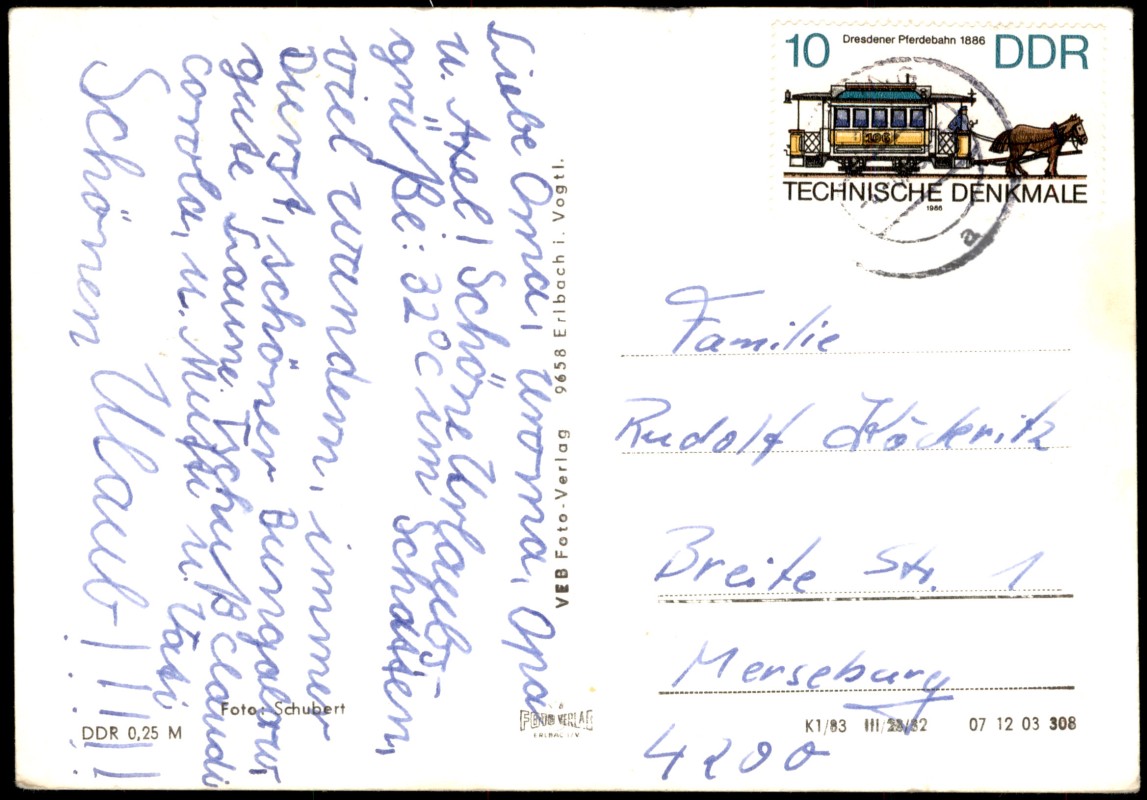 Liebe Oma, uroma, Opa
u. Axel! Schöne Urlaubs-
grüße: 32°C im Schatten,
viel wandern, immer
Durst, schöner Bungalow,
gute Laune. Tschüß Claudi
corola, u. Mutti u. Vati
Schönen Ulaub!!!!!
Foto: Schubert
DDR 0,25 M
VEB Foto-Verlag 9658 Erlbach i. Vogtl.
FOTO VERLAG
ERLBACH I.V.
10 Dresdener Pferdebahn 1886 DDR
106
TECHNISCHE DENKMALE
1986
a
Familie
Rudolf Köckritz
Breite Str. 1
Merseburg
4200
K1/83 III/28/82 07 12 03 308